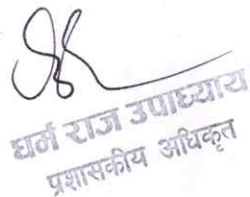 धर्न राज उपाध्याय
प्रशासकीय अधिकृत